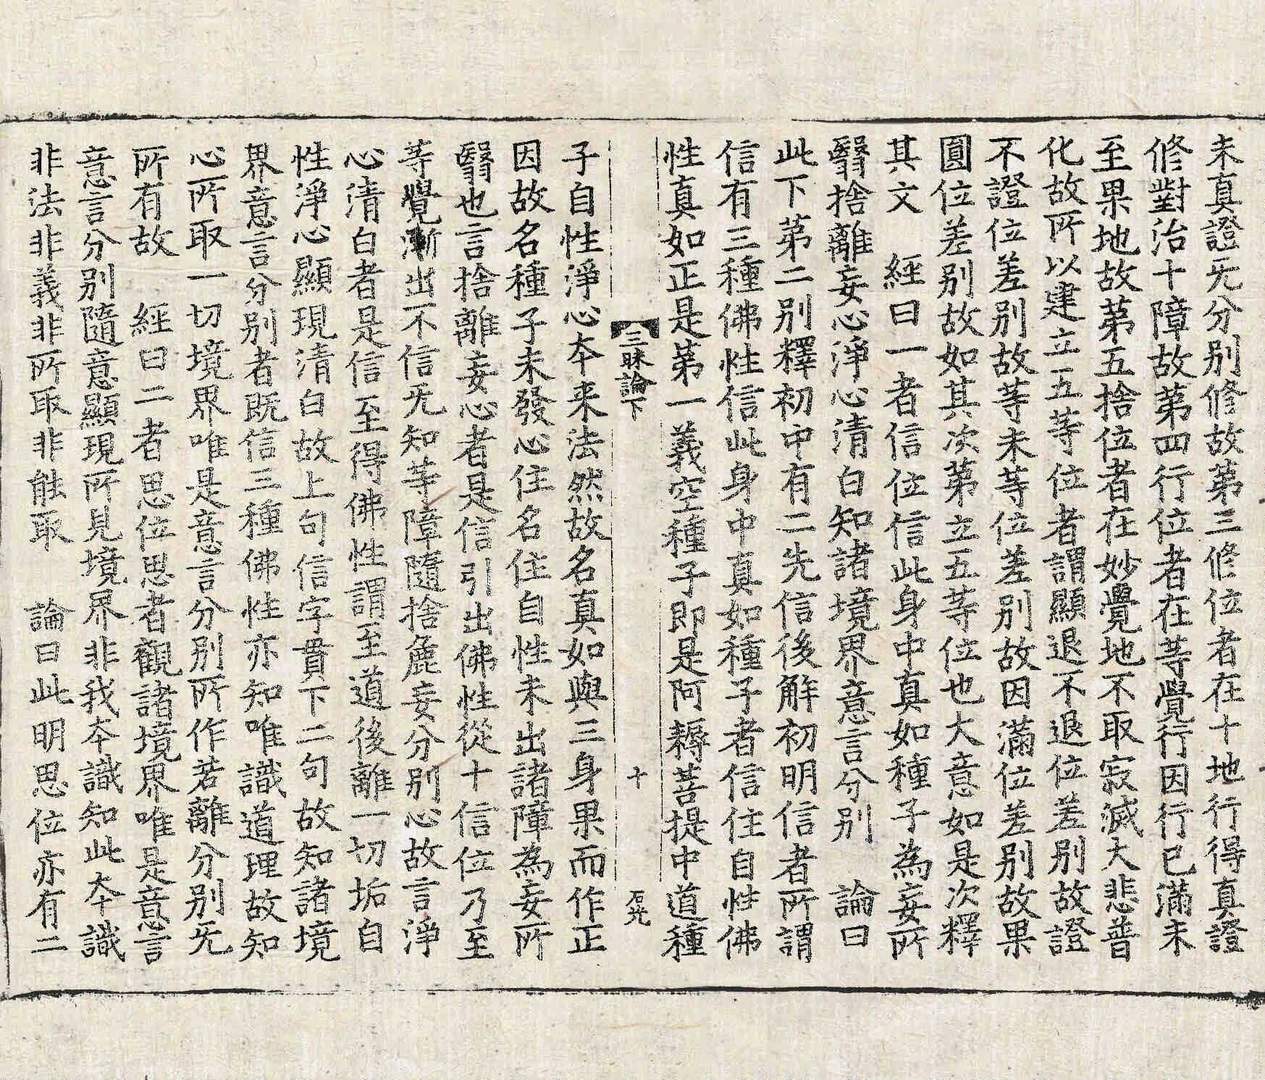 未真證无分別修故第三修位者在十地行得真證
修對治十障故第四行位者在等覺行因行已滿未
至果地故第五捨位者在妙覺地不取寂滅大悲普
化故所以建立五等位者謂顯退不退位差別故證
不證位差別故等未等位差別故因滿位差別故果
圓位差別故如其次第立五等位也大意如是次釋
其文　經曰一者信位信此身中真如種子為妄所
翳捨離妄心淨心清白知諸境界意言分別　論曰
此下第二別釋初中有二先信後解初明信者所謂
信有三種佛性信此身中真如種子者信住自性佛
性真如正是第一義空種子即是阿耨菩提中道種
三昧論下　十　石光
子自性淨心本来法然故名真如與三身果而作正
因故名種子未發心住名住自性未出諸障為妄所
翳也言捨離妄心者是信引出佛性從十信位乃至
等覺漸出不信无知等障隨捨麁妄分別心故言淨
心清白者是信至得佛性謂至道後離一切垢自
性淨心顯現清白故上句信字貫下二句故知諸境
界意言分別者既信三種佛性亦知唯識道理故知
心所取一切境界唯是意言分別所作若離分別无
所有故　經曰二者思位思者觀諸境界唯是意言
意言分別隨意顯現所見境界非我本識知此本識
非法非義非所取非能取　論曰此明思位亦有二